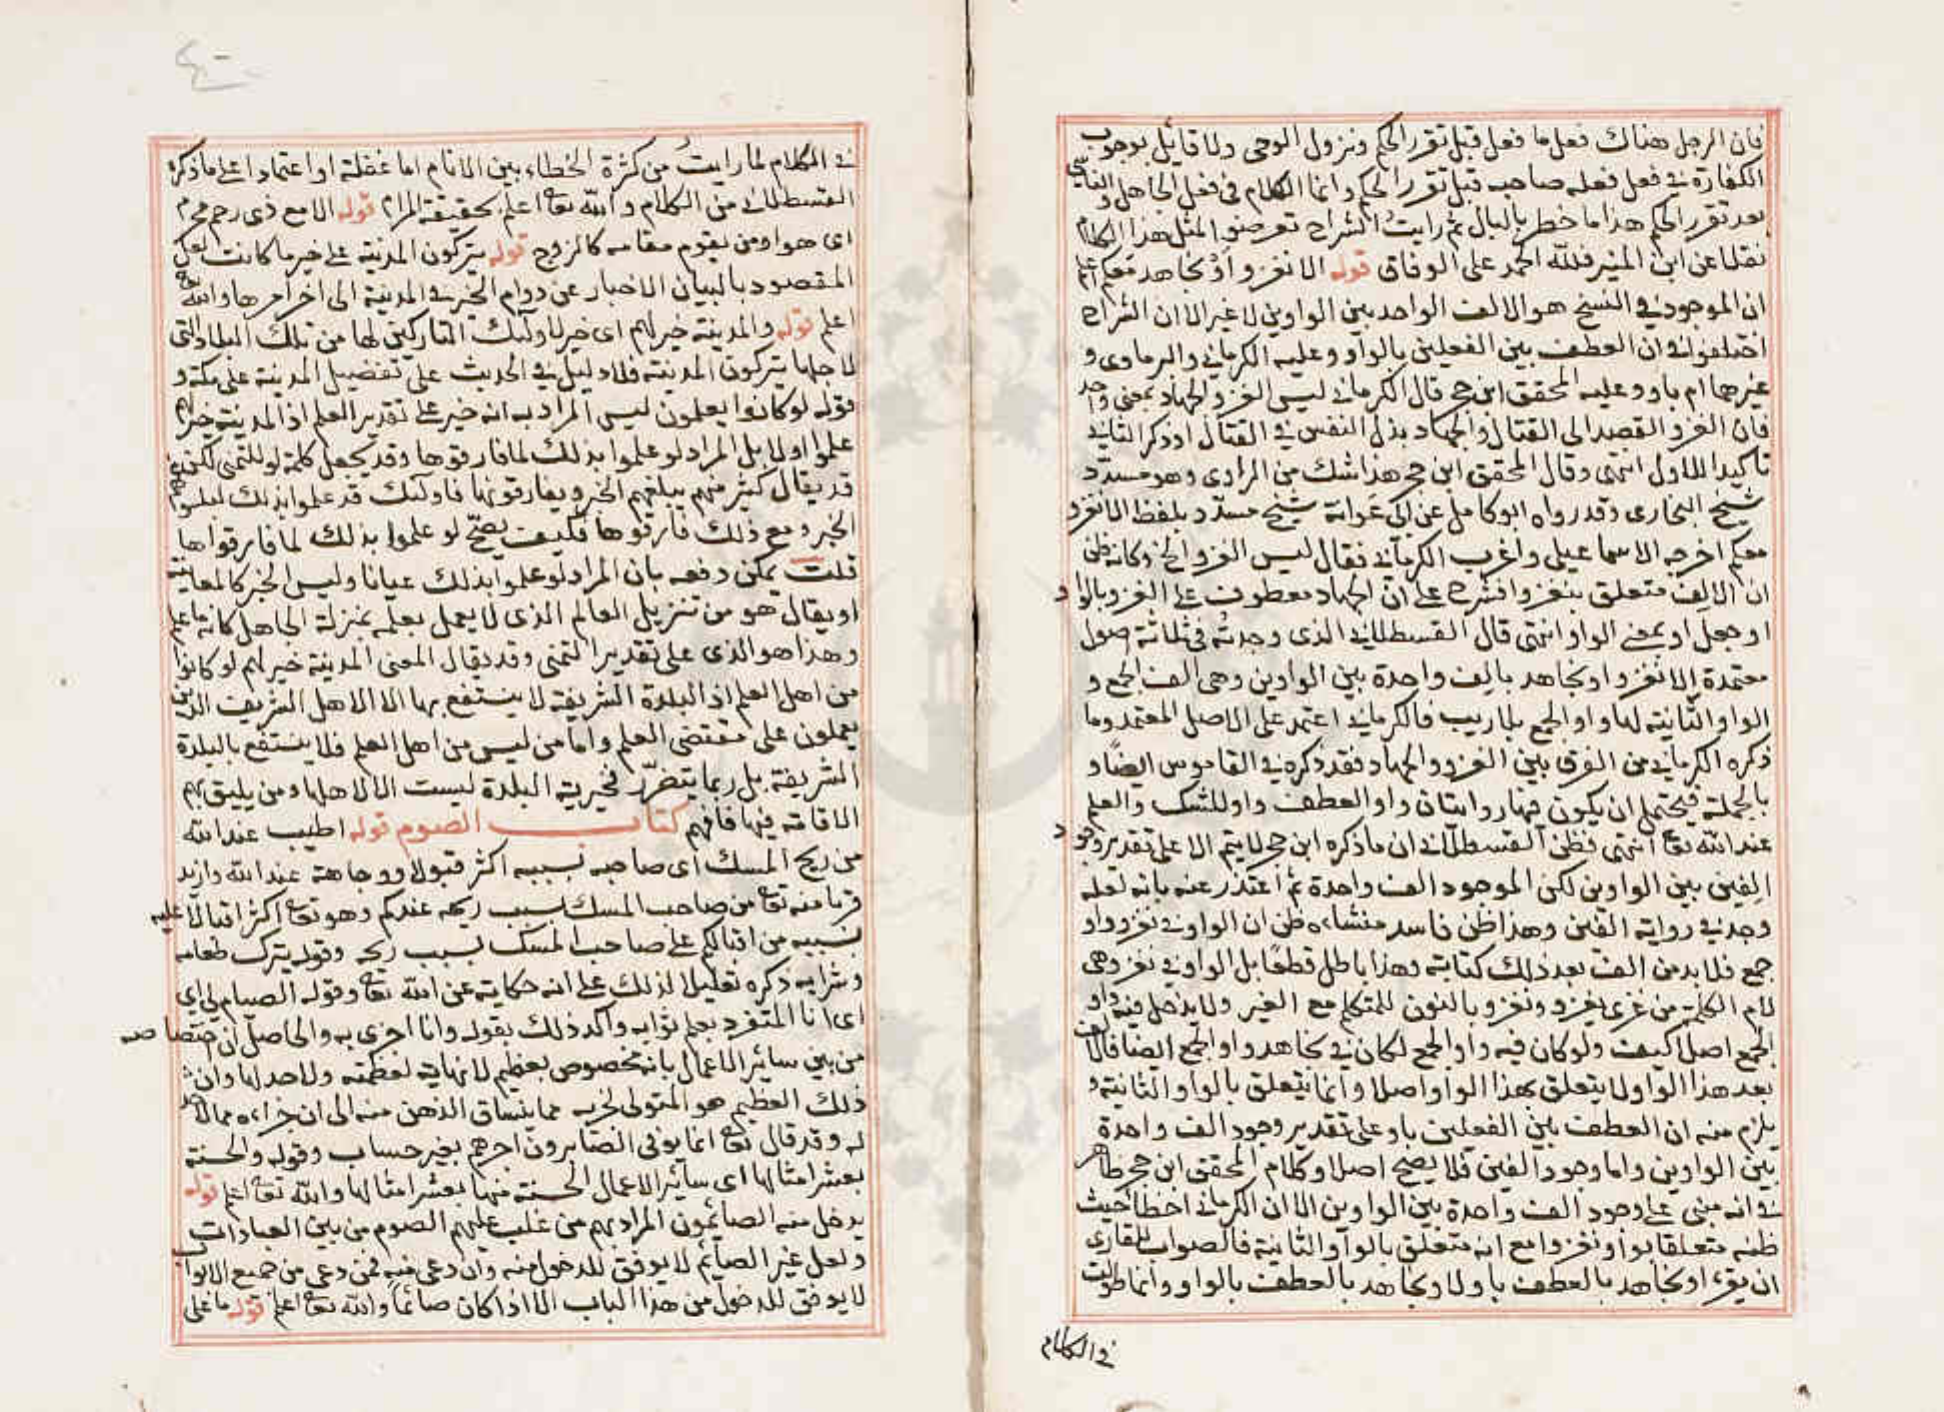 فان الرجل هناك فعل ما فعل قبل تقرر الحكم ونزول الوحى ولا قائل بوجوب
الكفارة في فعل فعله صاحبه قبل تقرر الحكم وانما الكلام في فعل الجاهل والناسي
بعد تقرر الحكم هذا ما خطر بالبال ثم رايت الشراح تعرضوا لمثل هذا الكلام
نقلا عن ابن المنير فلله الحمد على الوفاق قوله الا نغزو أو نجاهد معكم اعلم
ان الموجود في النسخ هو الالف الواحد بين الواوين لا غير الا ان الشراح
اختلفوا في ان العطف بين الفعلين بالواو وعليه الكرماني والبرماوى و
غيرها ام باو وعليه المحقق ابن حجر قال الكرماني ليس الغزو والجهاد بمعنى واحد
فان الغزو القصد الى القتال والجهاد بذل النفس في القتال او ذكر الثاني
تاكيدا للاول انتهى وقال المحقق ابن حجر هذا شك من الراوى وهو مسدد
شيخ البخارى وقد رواه ابو كامل عن ابي عوانة شيخ مسدد بلفظ الا نغزو
معكم اخرجه الاسماعيلى واغرب الكرماني فقال ليس الغزو الخ وكانه ظن
ان الالف متعلق بنغزو فشرح على ان الجهاد معطوف على الغزو بالواو
او جعل او بمعنى الواو انتهى قال القسطلاني الذى وجدته في ثلاثة اصول
معتمدة الا نغزوا ونجاهد بالف واحدة بين الواوين وهى الف الجمع و
الواو الثانية لها واو الجمع بلا ريب فالكرماني اعتمد على الاصل المعتمد وما
ذكره الكرماني من الفرق بين الغزو والجهاد فقد ذكره في القاموس ايضا و
بالجملة فيحتمل ان يكون فيها روايتان واو العطف واو للشك والعلم
عند الله تعا انتهى فظن القسطلاني ان ما ذكره ابن حجر لا يتم الا على تقدير وجود
الفين بين الواوين لكن الموجود الف واحدة ثم اعتذر عنه بانه لعله
وجد في رواية الفين وهذا ظن فاسد منشاءه ظن ان الواو في نغزو واو
جمع فلا بد من الف بعد ذلك كتابة وهذا باطل قطعا بل الواو في نغزو هى
لام الكلمة من غزى يغزو ونغزو بالنون للمتكلم مع الغير ولا يدخل فيه واو
الجمع اصلا كيف ولو كان فيه واو الجمع لكان في نجاهد واو الجمع ايضا فالالف
بعد هذا الواو لا يتعلق بهذا الواو اصلا وانما يتعلق بالواو الثانية و
يلزم منه ان العطف بين الفعلين باو على تقدير وجود الف واحدة
بين الواوين واما وجود الفين فلا يصح اصلا وكلام المحقق ابن حجر ظاهر
في انه مبنى على وجود الف واحدة بين الواوين الا ان الكرماني اخطأ حيث
ظنه متعلقا بواو نغزو مع انه متعلق بالواو الثانية فالصواب للقارى
ان يقرء او نجاهد بالعطف باو لا ونجاهد بالعطف بالواو وانما طولت
في الكلام
في الكلام لما رايت من كثرة الخطاء بين الانام اما غفلة او اعتمادا على ما ذكره
القسطلاني من الكلام والله تعا اعلم بحقيقة المرام قوله الا مع ذى رحم محرم
اى هو او من يقوم مقامه كالزوج قوله يتركون المدينة على خير ما كانت لعل
المقصود بالبيان الاخبار عن دوام الخير في المدينة الى اخر امرها والله تعا
اعلم قوله والمدينة خير لهم اى خير لاولئك التاركين لها من تلك البلاد التى
لاجلها يتركون المدينة فلا دليل في الحديث على تفضيل المدينة على مكة و
قوله لو كانوا يعلمون ليس المراد به انه خير على تقدير العلم اذ المدينة خير لهم
علموا اولا بل المراد لو علموا بذلك لما فارقوها وقد يجعل كلمة لو للتمنى لكن
قد يقال كثير منهم يبلغهم الخبر ويفارقونها فاولئك قد علموا بذلك
الخبر ومع ذلك فارقوها فكيف يصح لو علموا بذلك لما فارقواها
قلت يمكن دفعه بان المراد لو علموا بذلك عيانا وليس الخبر كالمعاينة
او يقال هو من تنزيل العالم الذى لا يعمل بعلمه بمنزلة الجاهل كانه ما علم
وهذا هو الذى على تقدير التمنى وقد يقال المعنى المدينة خير لهم لو كانوا
من اهل العلم اذ البلدة الشريفة لا ينتفع بها الا الاهل الشريف الذين
يعملون على مقتضى العلم واما من ليس من اهل العلم فلا ينتفع بالبلدة
الشريفة بل ربما يتضرر فخيرية البلدة ليست الا لاهلها ومن يليق بهم
الاقامة فيها فافهم كتاب الصوم قوله اطيب عند الله
من ريح المسك اى صاحبه بسببه اكثر قبولا ووجاهة عند الله وازيد
قربا منه تعا من صاحب المسك بسبب ريحه عندكم وهو تعا اكثر اقبالا عليه
بسببه من اقبالكم على صاحب المسك بسبب ريحه وقوله يترك طعامه
وشرابه ذكره تعليلا لذلك على انه حكاية عن الله تعا وقوله الصيام لي اى
اى انا المتفرد بعلم ثوابه واكد ذلك بقوله وانا اجزى به والحاصل ان اختصاصه
من بين سائر الاعمال بانه مخصوص بعظيم لا نهاية لعظمته ولا حد لها وان
ذلك العظيم هو المتولى لجزبه مما ينساق الذهن منه الى ان جزاءه مما لا حد
له وقد قال تعا انما يوفى الصابرون اجرهم بغير حساب وقوله والحسنة
بعشر امثالها اى سائر الاعمال الحسنة منها بعشر امثالها والله تعا اعلم قوله
يدخل منه الصائمون المراد بهم من غلب عليهم الصوم من بين العبادات
ولعل غير الصائم لا يوفق للدخول منه وان دعى منه فمن دعى من جميع الابواب
لا يوفق للدخول من هذا الباب الا اذا كان صائما والله تعا اعلم قوله ما على